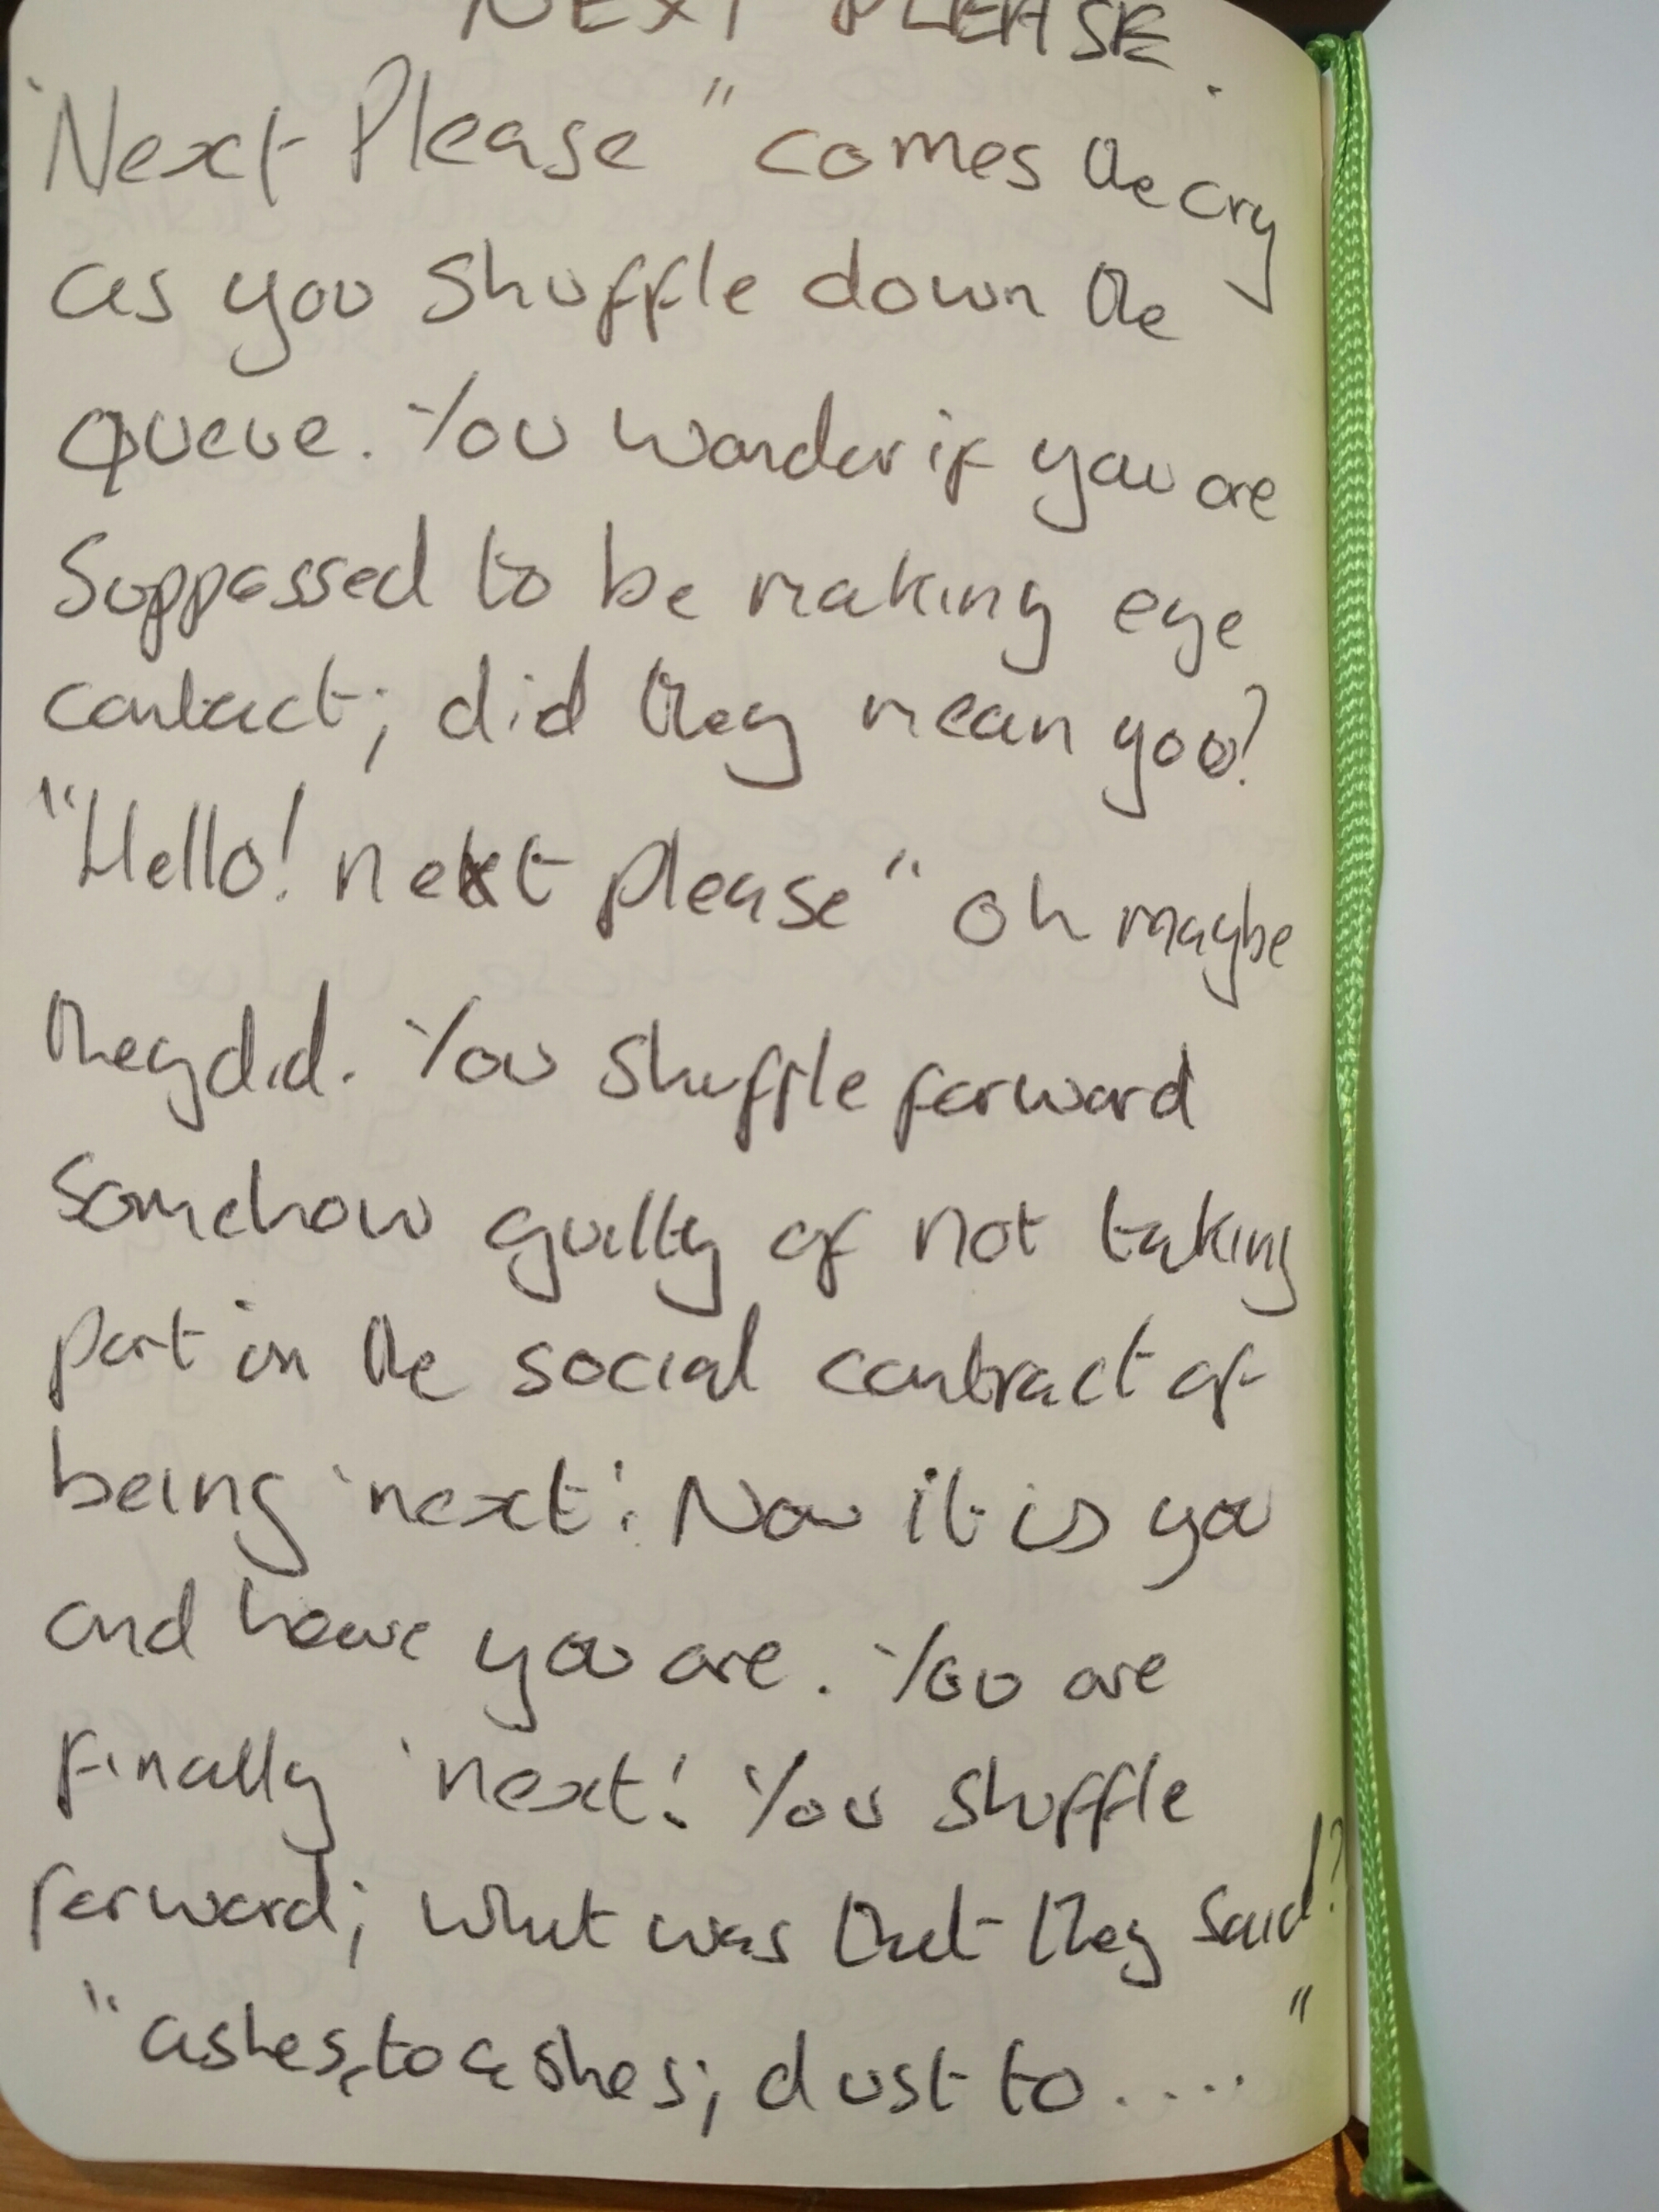 NEXT PLEASE.
"Next Please" comes the cry
as you shuffle down the
queue. You wonder if you are
Suppossed to be making eye
contact; did they mean you?
"Hello! next please" oh maybe
they did. You shuffle forward
somehow guilty of not taking
part in the social contract of
being 'next'. Now it is you
and here you are. You are
finally 'next'. You shuffle
forward; what was that they said?
"ashes, to ashes; dust to....."